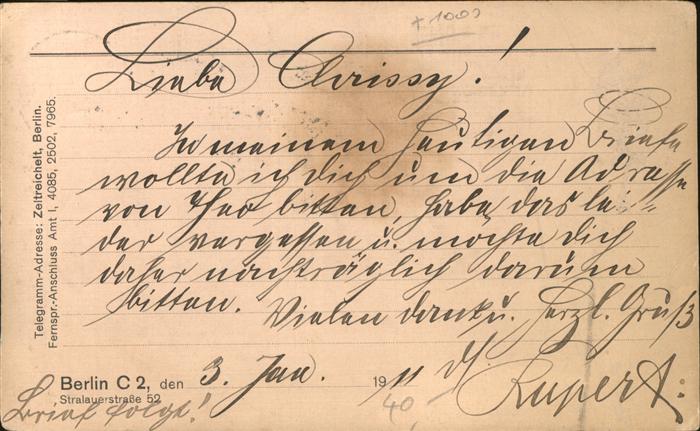 + 1000
Liebe Chrissy!
In meinem heutigen Briefe
wollte ich dich um die Adresse
von Theo bitten, habe das lei-
der vergessen u. möchte dich
daher nachträglich darum
bitten.
Vielen Dank u. herzl. Gruß
Rupert.
Telegramm-Adresse: Zeitreichelt, Berlin.
Fernspr.-Anschluss Amt I, 4085, 2502, 7965.
Berlin C 2, den 3. Jan. 1911
Stralauerstraße 52
40
Brief folgt!